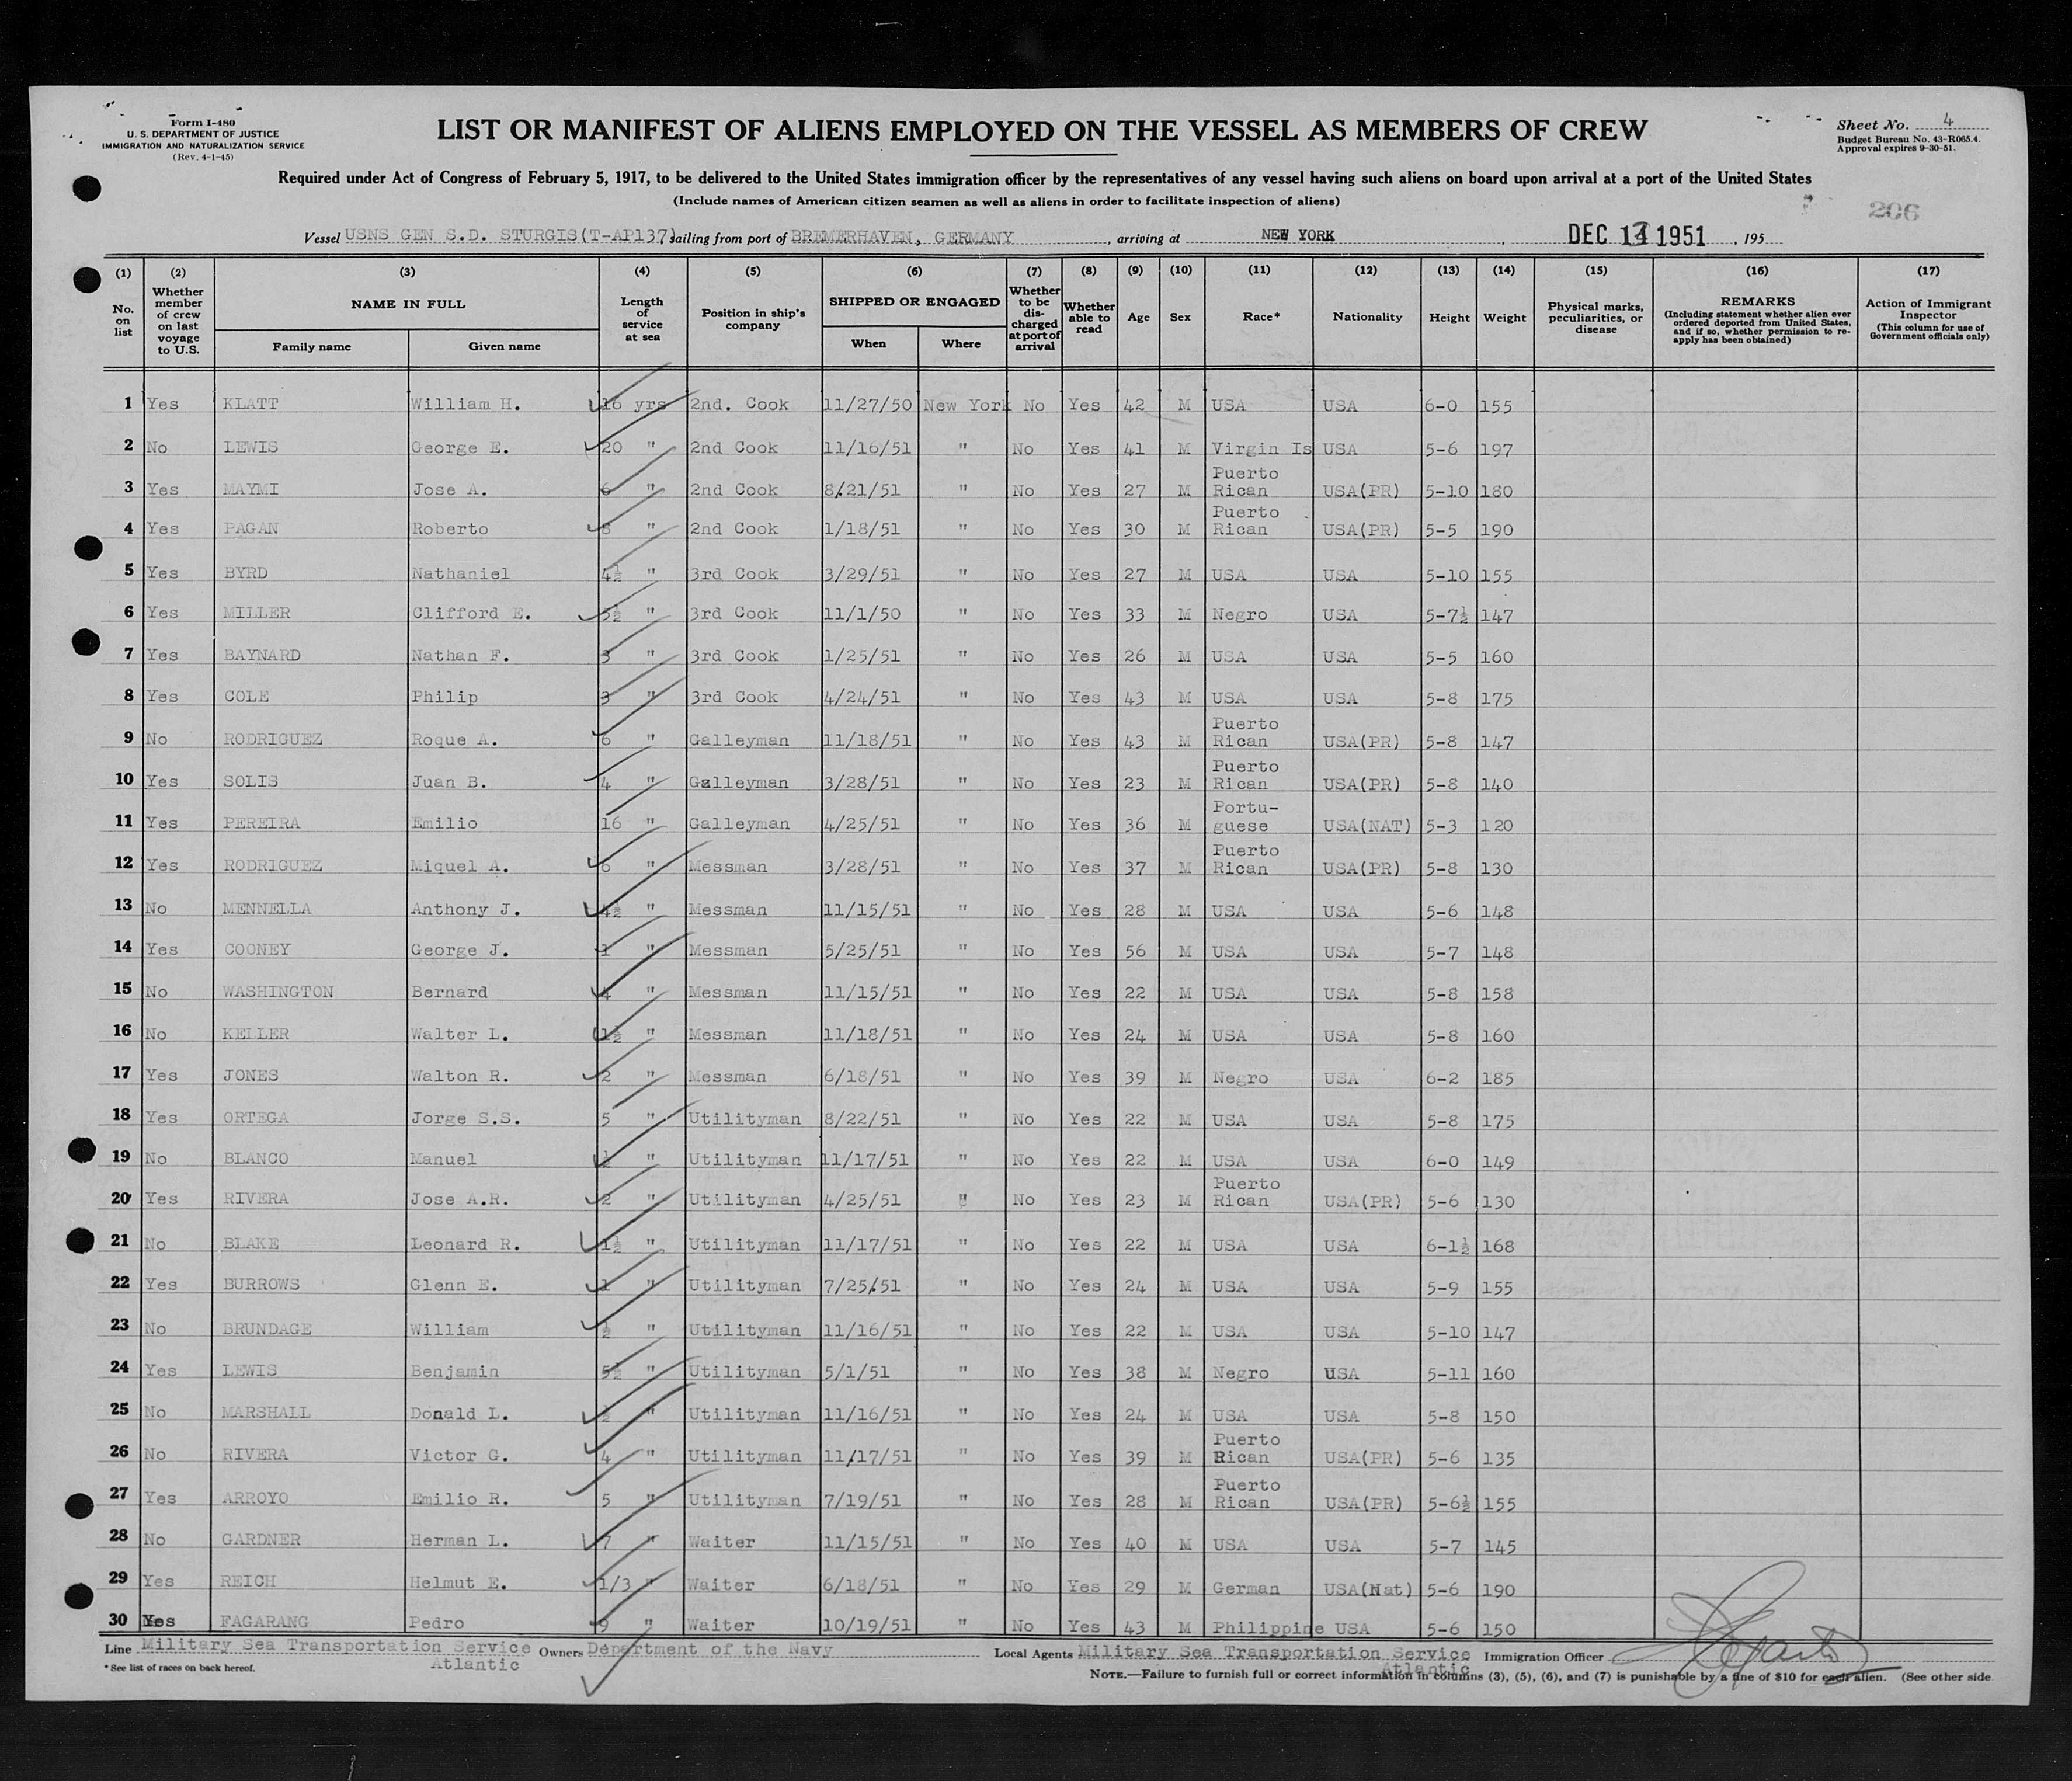 Form I-480
U. S. DEPARTMENT OF JUSTICE
IMMIGRATION AND NATURALIZATION SERVICE
(Rev. 4-1-45)
LIST OR MANIFEST OF ALIENS EMPLOYED ON THE VESSEL AS MEMBERS OF CREW
Sheet No. 4
Budget Bureau No. 43-R065.4.
Approval expires 9-30-51.
Required under Act of Congress of February 5, 1917, to be delivered to the United States immigration officer by the representatives of any vessel having such aliens on board upon arrival at a port of the United States
(Include names of American citizen seamen as well as aliens in order to facilitate inspection of aliens)
206
Vessel USNS GEN S.D. STURGIS(T-AP137) sailing from port of BREMERHAVEN, GERMANY, arriving at NEW YORK, DEC 1951, 195
(1) (2) (3) (4) (5) (6) (7) (8) (9) (10) (11) (12) (13) (14) (15) (16) (17)
No. on list
Whether member of crew on last voyage to U.S.
NAME IN FULL
Family name
Given name
Length of service at sea
Position in ship's company
SHIPPED OR ENGAGED
When
Where
Whether to be discharged at port of arrival
Whether able to read
Age
Sex
Race*
Nationality
Height
Weight
Physical marks, peculiarities, or disease
REMARKS
(Including statement whether alien ever ordered deported from United States, and if so, whether permission to reapply has been obtained)
Action of Immigrant Inspector
(This column for use of Government officials only)
1 Yes KLATT William H. 16 yrs 2nd. Cook 11/27/50 New York No Yes 42 M USA USA 6-0 155
2 No LEWIS George E. 20 " 2nd Cook 11/16/51 " No Yes 41 M Virgin Is USA 5-6 197
3 Yes MAYMI Jose A. 6 " 2nd Cook 8/21/51 " No Yes 27 M Puerto Rican USA(PR) 5-10 180
4 Yes PAGAN Roberto 8 " 2nd Cook 1/18/51 " No Yes 30 M Puerto Rican USA(PR) 5-5 190
5 Yes BYRD Nathaniel 4½ " 3rd Cook 3/29/51 " No Yes 27 M USA USA 5-10 155
6 Yes MILLER Clifford E. 5½ " 3rd Cook 11/1/50 " No Yes 33 M Negro USA 5-7½ 147
7 Yes BAYNARD Nathan F. 3 " 3rd Cook 1/25/51 " No Yes 26 M USA USA 5-5 160
8 Yes COLE Philip 3 " 3rd Cook 4/24/51 " No Yes 43 M USA USA 5-8 175
9 No RODRIGUEZ Roque A. 6 " Galleyman 11/18/51 " No Yes 43 M Puerto Rican USA(PR) 5-8 147
10 Yes SOLIS Juan B. 4 " Galleyman 3/28/51 " No Yes 23 M Puerto Rican USA(PR) 5-8 140
11 Yes PEREIRA Emilio 16 " Galleyman 4/25/51 " No Yes 36 M Portu-guese USA(NAT) 5-3 120
12 Yes RODRIGUEZ Miquel A. 6 " Messman 3/28/51 " No Yes 37 M Puerto Rican USA(PR) 5-8 130
13 No MENNELLA Anthony J. 4½ " Messman 11/15/51 " No Yes 28 M USA USA 5-6 148
14 Yes COONEY George J. 1 " Messman 5/25/51 " No Yes 56 M USA USA 5-7 148
15 No WASHINGTON Bernard 4 " Messman 11/15/51 " No Yes 22 M USA USA 5-8 158
16 No KELLER Walter L. 1½ " Messman 11/18/51 " No Yes 24 M USA USA 5-8 160
17 Yes JONES Walton R. 2 " Messman 6/18/51 " No Yes 39 M Negro USA 6-2 185
18 Yes ORTEGA Jorge S.S. 5 " Utilityman 8/22/51 " No Yes 22 M USA USA 5-8 175
19 No BLANCO Manuel ½ " Utilityman 11/17/51 " No Yes 22 M USA USA 6-0 149
20 Yes RIVERA Jose A.R. 2 " Utilityman 4/25/51 " No Yes 23 M Puerto Rican USA(PR) 5-6 130
21 No BLAKE Leonard R. 1½ " Utilityman 11/17/51 " No Yes 22 M USA USA 6-1½ 168
22 Yes BURROWS Glenn E. 1 " Utilityman 7/25/51 " No Yes 24 M USA USA 5-9 155
23 No BRUNDAGE William ½ " Utilityman 11/16/51 " No Yes 22 M USA USA 5-10 147
24 Yes LEWIS Benjamin 5½ " Utilityman 5/1/51 " No Yes 38 M Negro USA 5-11 160
25 No MARSHALL Donald L. ½ " Utilityman 11/16/51 " No Yes 24 M USA USA 5-8 150
26 No RIVERA Victor G. 4 " Utilityman 11/17/51 " No Yes 39 M Puerto Rican USA(PR) 5-6 135
27 Yes ARROYO Emilio R. 5 " Utilityman 7/19/51 " No Yes 28 M Puerto Rican USA(PR) 5-6½ 155
28 No GARDNER Herman L. 7 " Waiter 11/15/51 " No Yes 40 M USA USA 5-7 145
29 Yes REICH Helmut E. 1/3 " Waiter 6/18/51 " No Yes 29 M German USA(Nat) 5-6 190
30 Yes FAGARANG Pedro 9 " Waiter 10/19/51 " No Yes 43 M Philippine USA 5-6 150
Line Military Sea Transportation Service Atlantic Owners Department of the Navy Local Agents Military Sea Transportation Service Atlantic Immigration Officer
*See list of races on back hereof.
NOTE.—Failure to furnish full or correct information in columns (3), (5), (6), and (7) is punishable by a fine of $10 for each alien. (See other side